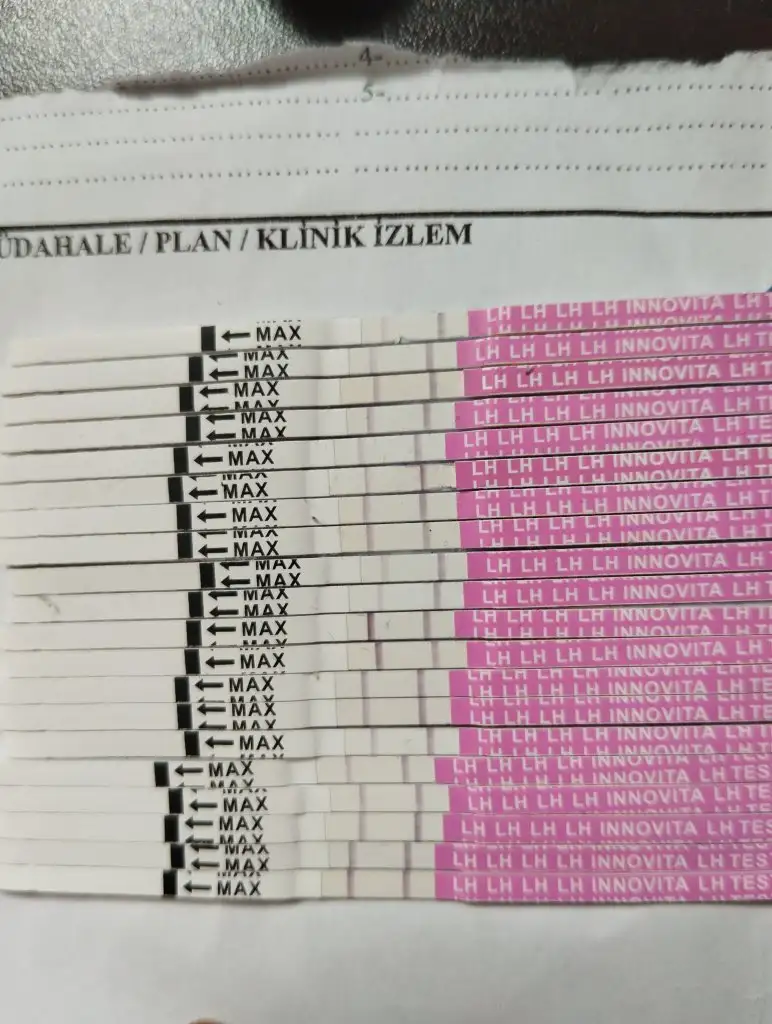 4-
5-
ÜDAHALE / PLAN / KLİNİK İZLEM
← MAX LH LH LH LH INNOVITA LH T
← MAX LH LH LH LH INNOVITA LH T
← MAX LH LH LH LH INNOVITA LH
← MAX LH LH LH LH INNOVITA LH T
← MAX LH LH LH LH INNOVITA LH TE
← MAX LH LH LH LH INNOVITA LH T
← MAX LH LH LH LH INNOVITA LH T
← MAX LH LH LH LH INNOVITA LH T
← MAX LH LH LH LH INNOVITA LH T
← MAX LH LH LH LH INNOVITA LH T
← MAX LH LH LH LH INNOVITA LH T
← MAX LH LH LH LH INNOVITA LH T
← MAX LH LH LH LH INNOVITA LH T
← MAX LH LH LH LH INNOVITA LH T
← MAX LH LH LH LH INNOVITA LH T
← MAX LH LH LH LH INNOVITA LH T
← MAX LH LH LH LH INNOVITA LH TES
← MAX LH LH LH LH INNOVITA LH TE
← MAX LH LH LH LH INNOVITA LH TES
← MAX LH LH LH LH INNOVITA LH TES
← MAX LH LH LH LH INNOVITA LH TES